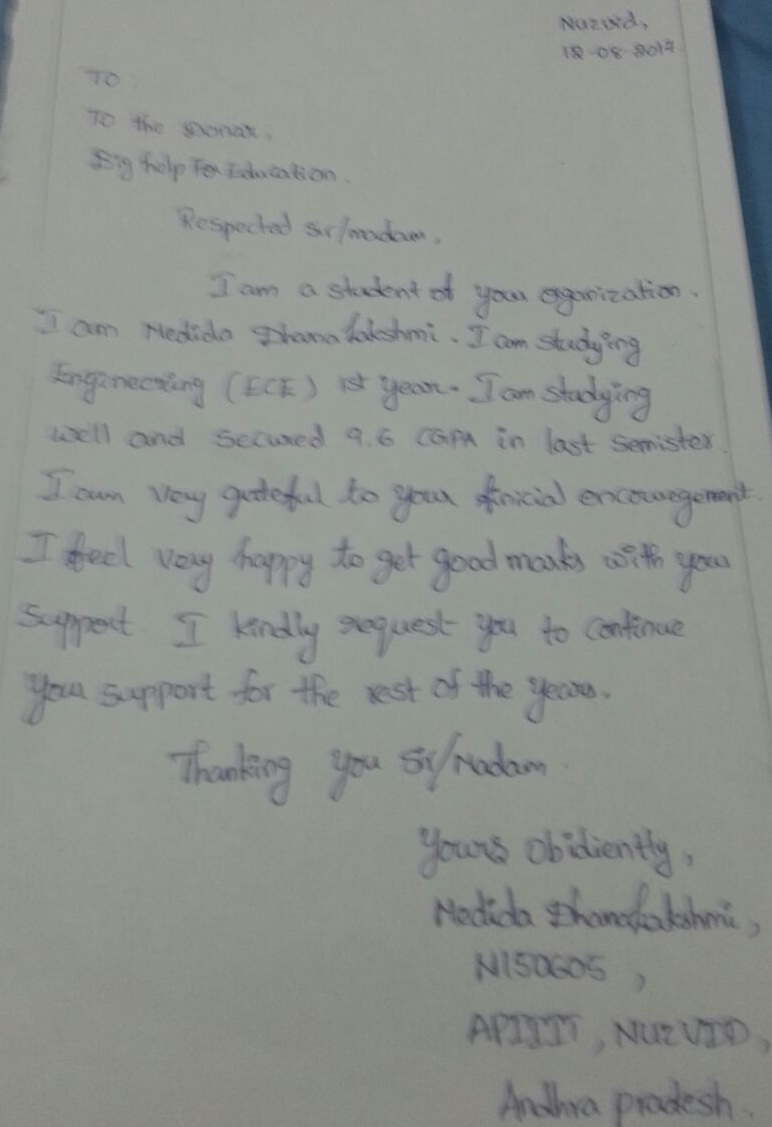 Nuzvid,
18-08-2017.
TO
TO the Donar,
Big help For Education.
Respected sir/madam,
I am a student of your organization.
I am Medida Dhana lakshmi. I am studying
Engineering (ECE) 1st year. I am studying
well and secured 9.6 CGPA in last semister.
I am very grateful to your finicial encouregement
I feel very happy to get good marks with your
support. I kindly request you to continue
your support for the rest of the years.
Thanking you Sir/Madam.
Yours obidiently,
Medida Dhanalakshmi,
N150605,
APIIIT, NUZVID,
Andhra pradesh.